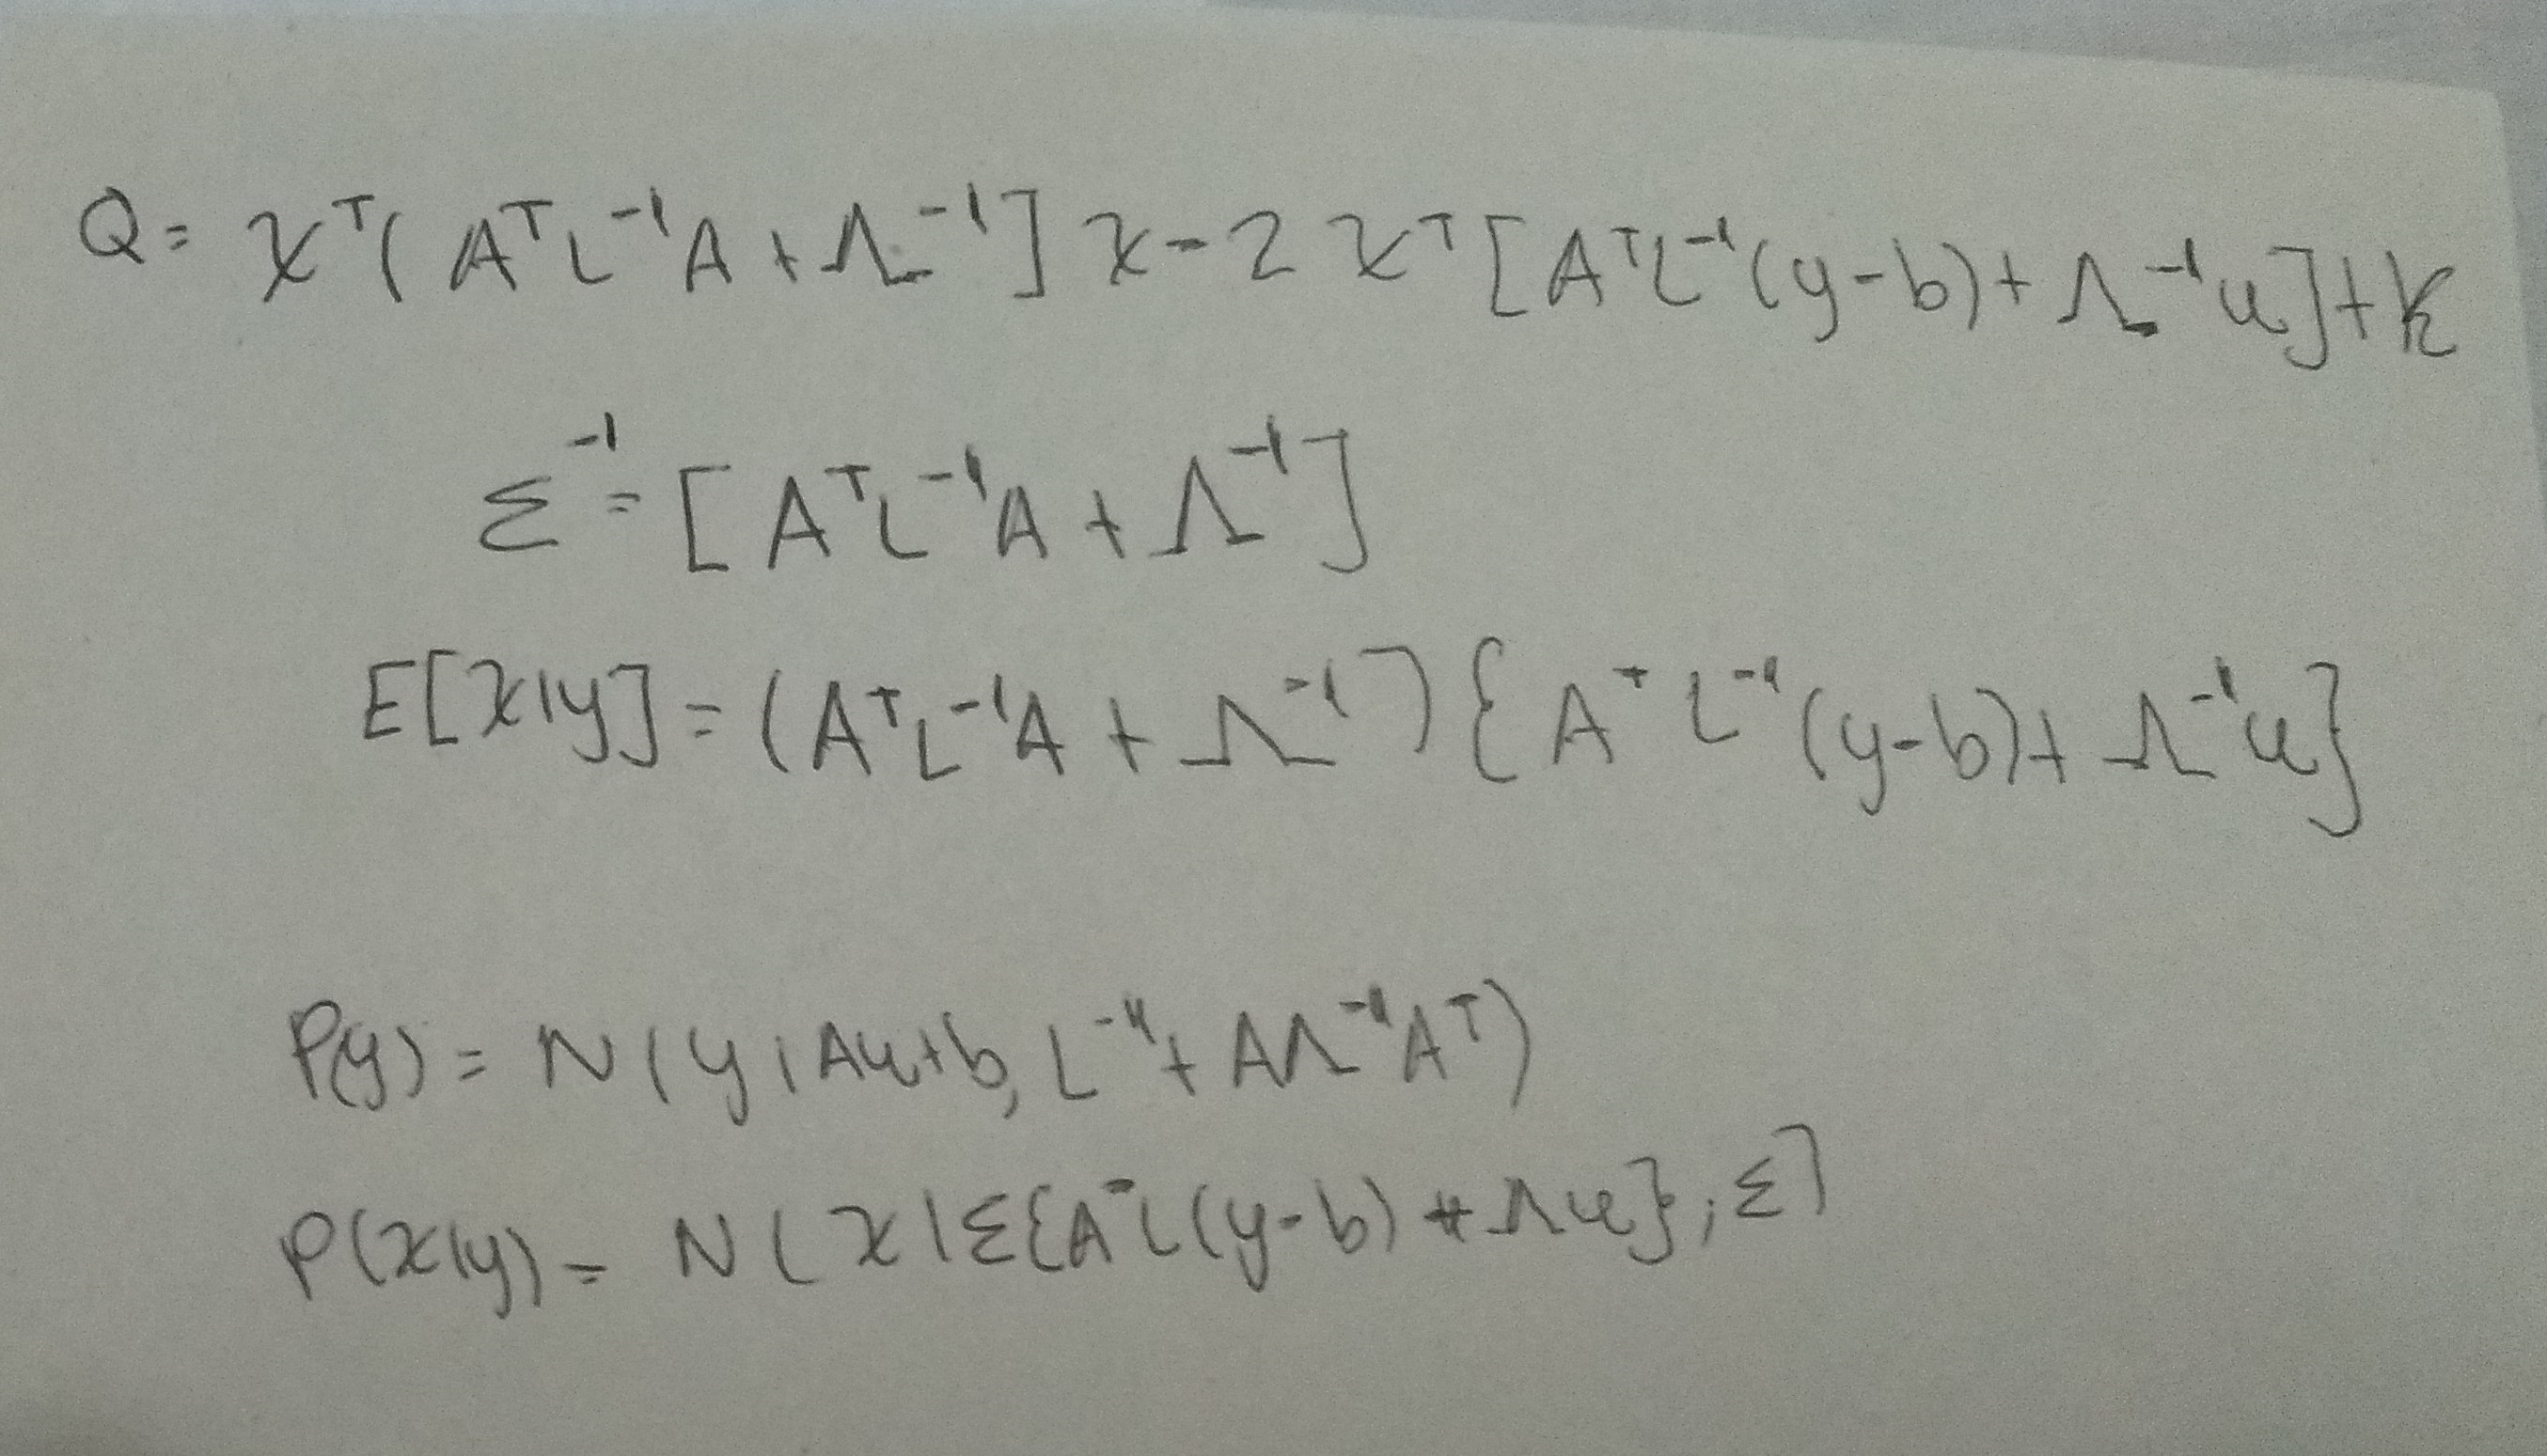 Q = x^T ( A^T L^-1 A + Λ^-1 ] x - 2 x^T [ A^T L^-1 (y-b) + Λ^-1 u ] + k
Σ^-1 = [ A^T L^-1 A + Λ^-1 ]
E[x|y] = (A^T L^-1 A + Λ^-1) { A^T L^-1 (y-b) + Λ^-1 u }
P(y) = N(y|Au+b, L^-1 + AΛ^-1 A^T)
P(x|y) = N(x|Σ{A^T L(y-b) + Λu}, Σ]